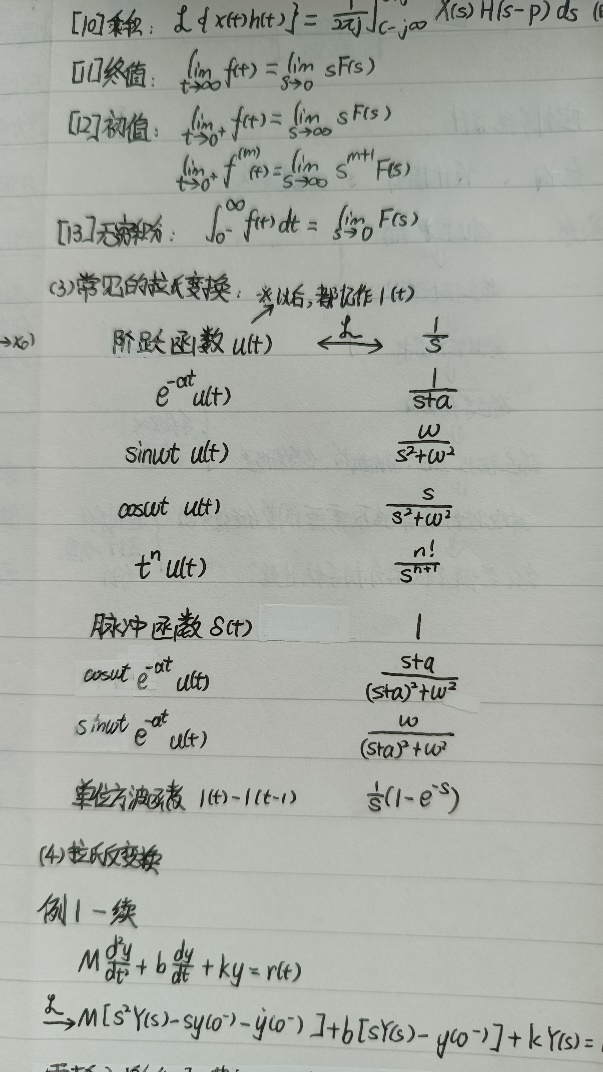 [10]乘积: ℒ{x(t)h(t)} = 1/2πj ∫c-j∞ X(s)H(s-p)ds
[11]终值: lim t→∞ f(t) = lim s→0 sF(s)
[12]初值: lim t→0⁺ f(t) = lim s→∞ sF(s)
lim t→0⁺ f⁽ᵐ⁾(t) = lim s→∞ s^(m+1) F(s)
[13]无穷积分: ∫0⁻^∞ f(t)dt = lim s→0 F(s)
(3)常见的拉氏变换: *以后,都记作1(t)
→x₀) 阶跃函数 u(t) ⟷ℒ 1/s
e^(-at) u(t) 1/(s+a)
sinωt u(t) ω/(s²+ω²)
cosωt u(t) s/(s²+ω²)
tⁿ u(t) n!/s^(n+1)
脉冲函数 δ(t) 1
cosωt e^(-at) u(t) (s+a)/((s+a)²+ω²)
sinωt e^(-at) u(t) ω/((s+a)²+ω²)
单位方波函数 1(t)-1(t-1) 1/s(1-e^(-s))
(4)拉氏反变换
例1-续
M d²y/dt² + b dy/dt + ky = r(t)
ℒ→ M[s²Y(s)-sy(0⁻)-ẏ(0⁻)]+b[sY(s)-y(0⁻)]+kY(s)=